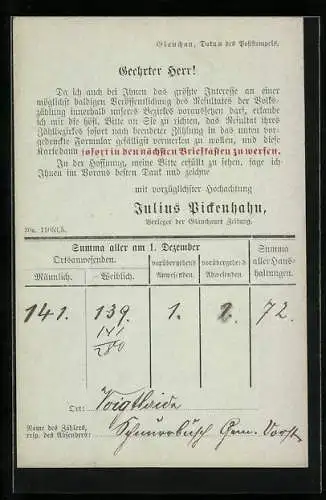 Glauchau, Datum des Poststempels.
Geehrter Herr!
Da ich auch bei Ihnen das größte Interesse an einer
möglichst baldigen Veröffentlichung des Resultates der Volks-
zählung innerhalb unseres Bezirkes voraussetzen darf, erlaube
ich mir die höfl. Bitte an Sie zu richten, das Resultat ihres
Zählbezirkes sofort nach beendeter Zählung in das unten vor-
gedruckte Formular gefälligst vermerken zu wollen, und diese
Postkarte dann sofort in den nächsten Briefkasten zu werfen.
In der Hoffnung, meine Bitte erfüllt zu sehen, sage ich
Ihnen im Voraus besten Dank und zeichne
mit vorzüglichster Hochachtung
Julius Pickenhahn,
Verleger der Glauchauer Zeitung.
Summa aller am 1. Dezember
Ortsanwesenden.
vorübergehend Abwesenden
vorübergehend Anwesenden
Summa aller Haus-
haltungen.
Männlich.
Weiblich.
141. 139. 1. 2. 72.
141
280
Ort: Voigtlaide
Name des Zählers,
resp. des Absenders: Schnurrbusch Gem. Vorst